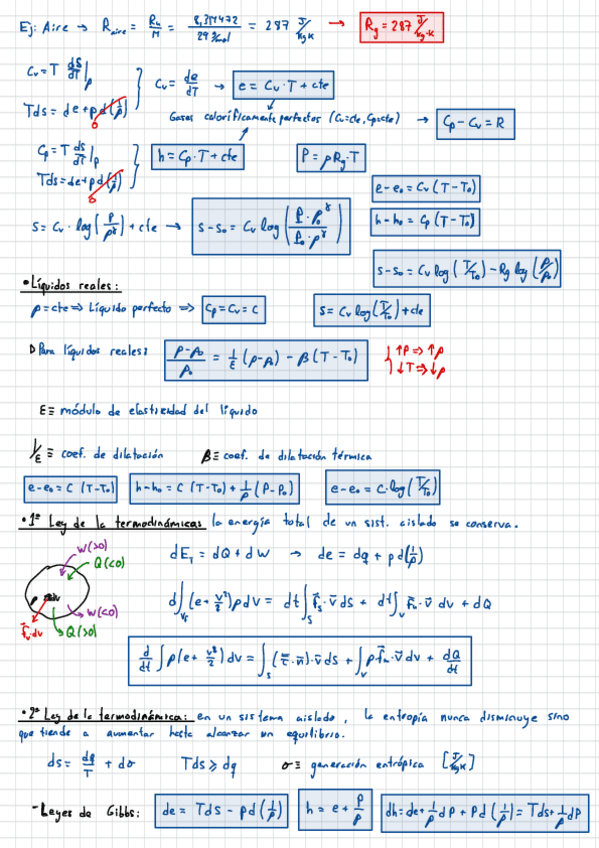 Ej: Aire → R_aire = R_u/M = 8,314472/29 g/mol = 287 J/kg·K → R_g = 287 J/kg·K
C_v = T ds/dT|_ρ
C_v = de/dT → e = C_v·T + cte
Tds = de + p d(1/ρ) 0
Gases caloríficamente perfectos (C_v=cte, C_p=cte) → C_p - C_v = R
C_p = T ds/dT|_p
h = C_p·T + cte
P = ρ R_g·T
Tds = de + p d(1/ρ) 0
e - e₀ = C_v (T - T₀)
h - h₀ = C_p (T - T₀)
s = C_v · log(p/ρ^γ) + cte → s - s₀ = C_v log(p·ρ₀^γ / p₀·ρ^γ)
s - s₀ = C_v log(T/T₀) - R_g log(ρ/ρ₀)
• Líquidos reales:
ρ = cte ⇒ Líquido perfecto ⇒ C_p = C_v = C
s = C_v log(T/T₀) + cte
▷ Para líquidos reales: (ρ - ρ₀)/ρ₀ = 1/ε (p - p₀) - β (T - T₀)
↑p ⇒ ↑ρ
↓T ⇒ ↓ρ
ε ≡ módulo de elasticidad del líquido
1/ε ≡ coef. de dilatación β ≡ coef. de dilatación térmica
e - e₀ = C (T - T₀) h - h₀ = C (T - T₀) + 1/ρ (P - P₀) e - e₀ = C·log(T/T₀)
• 1ª Ley de la termodinámica: la energía total de un sist. aislado se conserva.
W(>0)
Q(<0)
dE_T = dQ + dW → de = dq + p d(1/ρ)
ρ dv
W(<0)
f_v dv
Q(>0)
d∫_Vf (e + v²/2) ρ dv = dt ∫_S f_s · v ds + dt ∫_V f_m · v dv + dQ
d/dt ∫ ρ (e + v²/2) dv = ∫_S (τ · n) · v ds + ∫_V ρ f_m · v dv + dQ/dt
• 2ª Ley de la termodinámica: en un sistema aislado, la entropía nunca disminuye sino
que tiende a aumentar hasta alcanzar un equilibrio.
ds = dq/T + dσ Tds ≥ dq σ ≡ generación entrópica [J/kg K]
- Leyes de Gibbs: de = Tds - pd(1/ρ) h = e + P/ρ dh = de + 1/ρ dP + Pd(1/ρ) = Tds + 1/ρ dP